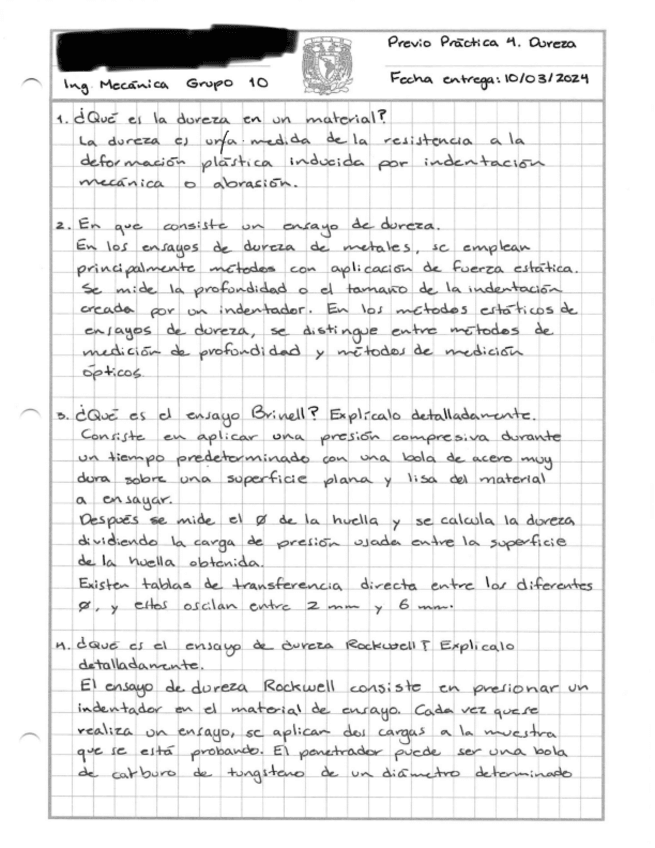 Previo Práctica 4. Dureza
Ing. Mecánica Grupo 10
Fecha entrega: 10/03/2024
1. ¿Qué es la dureza en un material?
La dureza es una medida de la resistencia a la
deformación plástica inducida por indentación
mecánica o abrasión.
2. En que consiste un ensayo de dureza.
En los ensayos de dureza de metales, se emplean
principalmente métodos con aplicación de fuerza estática.
Se mide la profundidad o el tamaño de la indentación
creada por un indentador. En los métodos estáticos de
ensayos de dureza, se distingue entre métodos de
medición de profundidad y métodos de medición
ópticos.
3. ¿Qué es el ensayo Brinell? Explícalo detalladamente.
Consiste en aplicar una presión compresiva durante
un tiempo predeterminado con una bola de acero muy
dura sobre una superficie plana y lisa del material
a ensayar.
Después se mide el Ø de la huella y se calcula la dureza
dividiendo la carga de presión usada entre la superficie
de la huella obtenida.
Existen tablas de transferencia directa entre los diferentes
Ø, y estos oscilan entre 2 mm y 6 mm.
4. ¿Qué es el ensayo de dureza Rockwell? Explicalo
detalladamente.
El ensayo de dureza Rockwell consiste en presionar un
indentador en el material de ensayo. Cada vez que se
realiza un ensayo, se aplican dos cargas a la muestra
que se está probando. El penetrador puede ser una bola
de carburo de tungsteno de un diámetro determinado